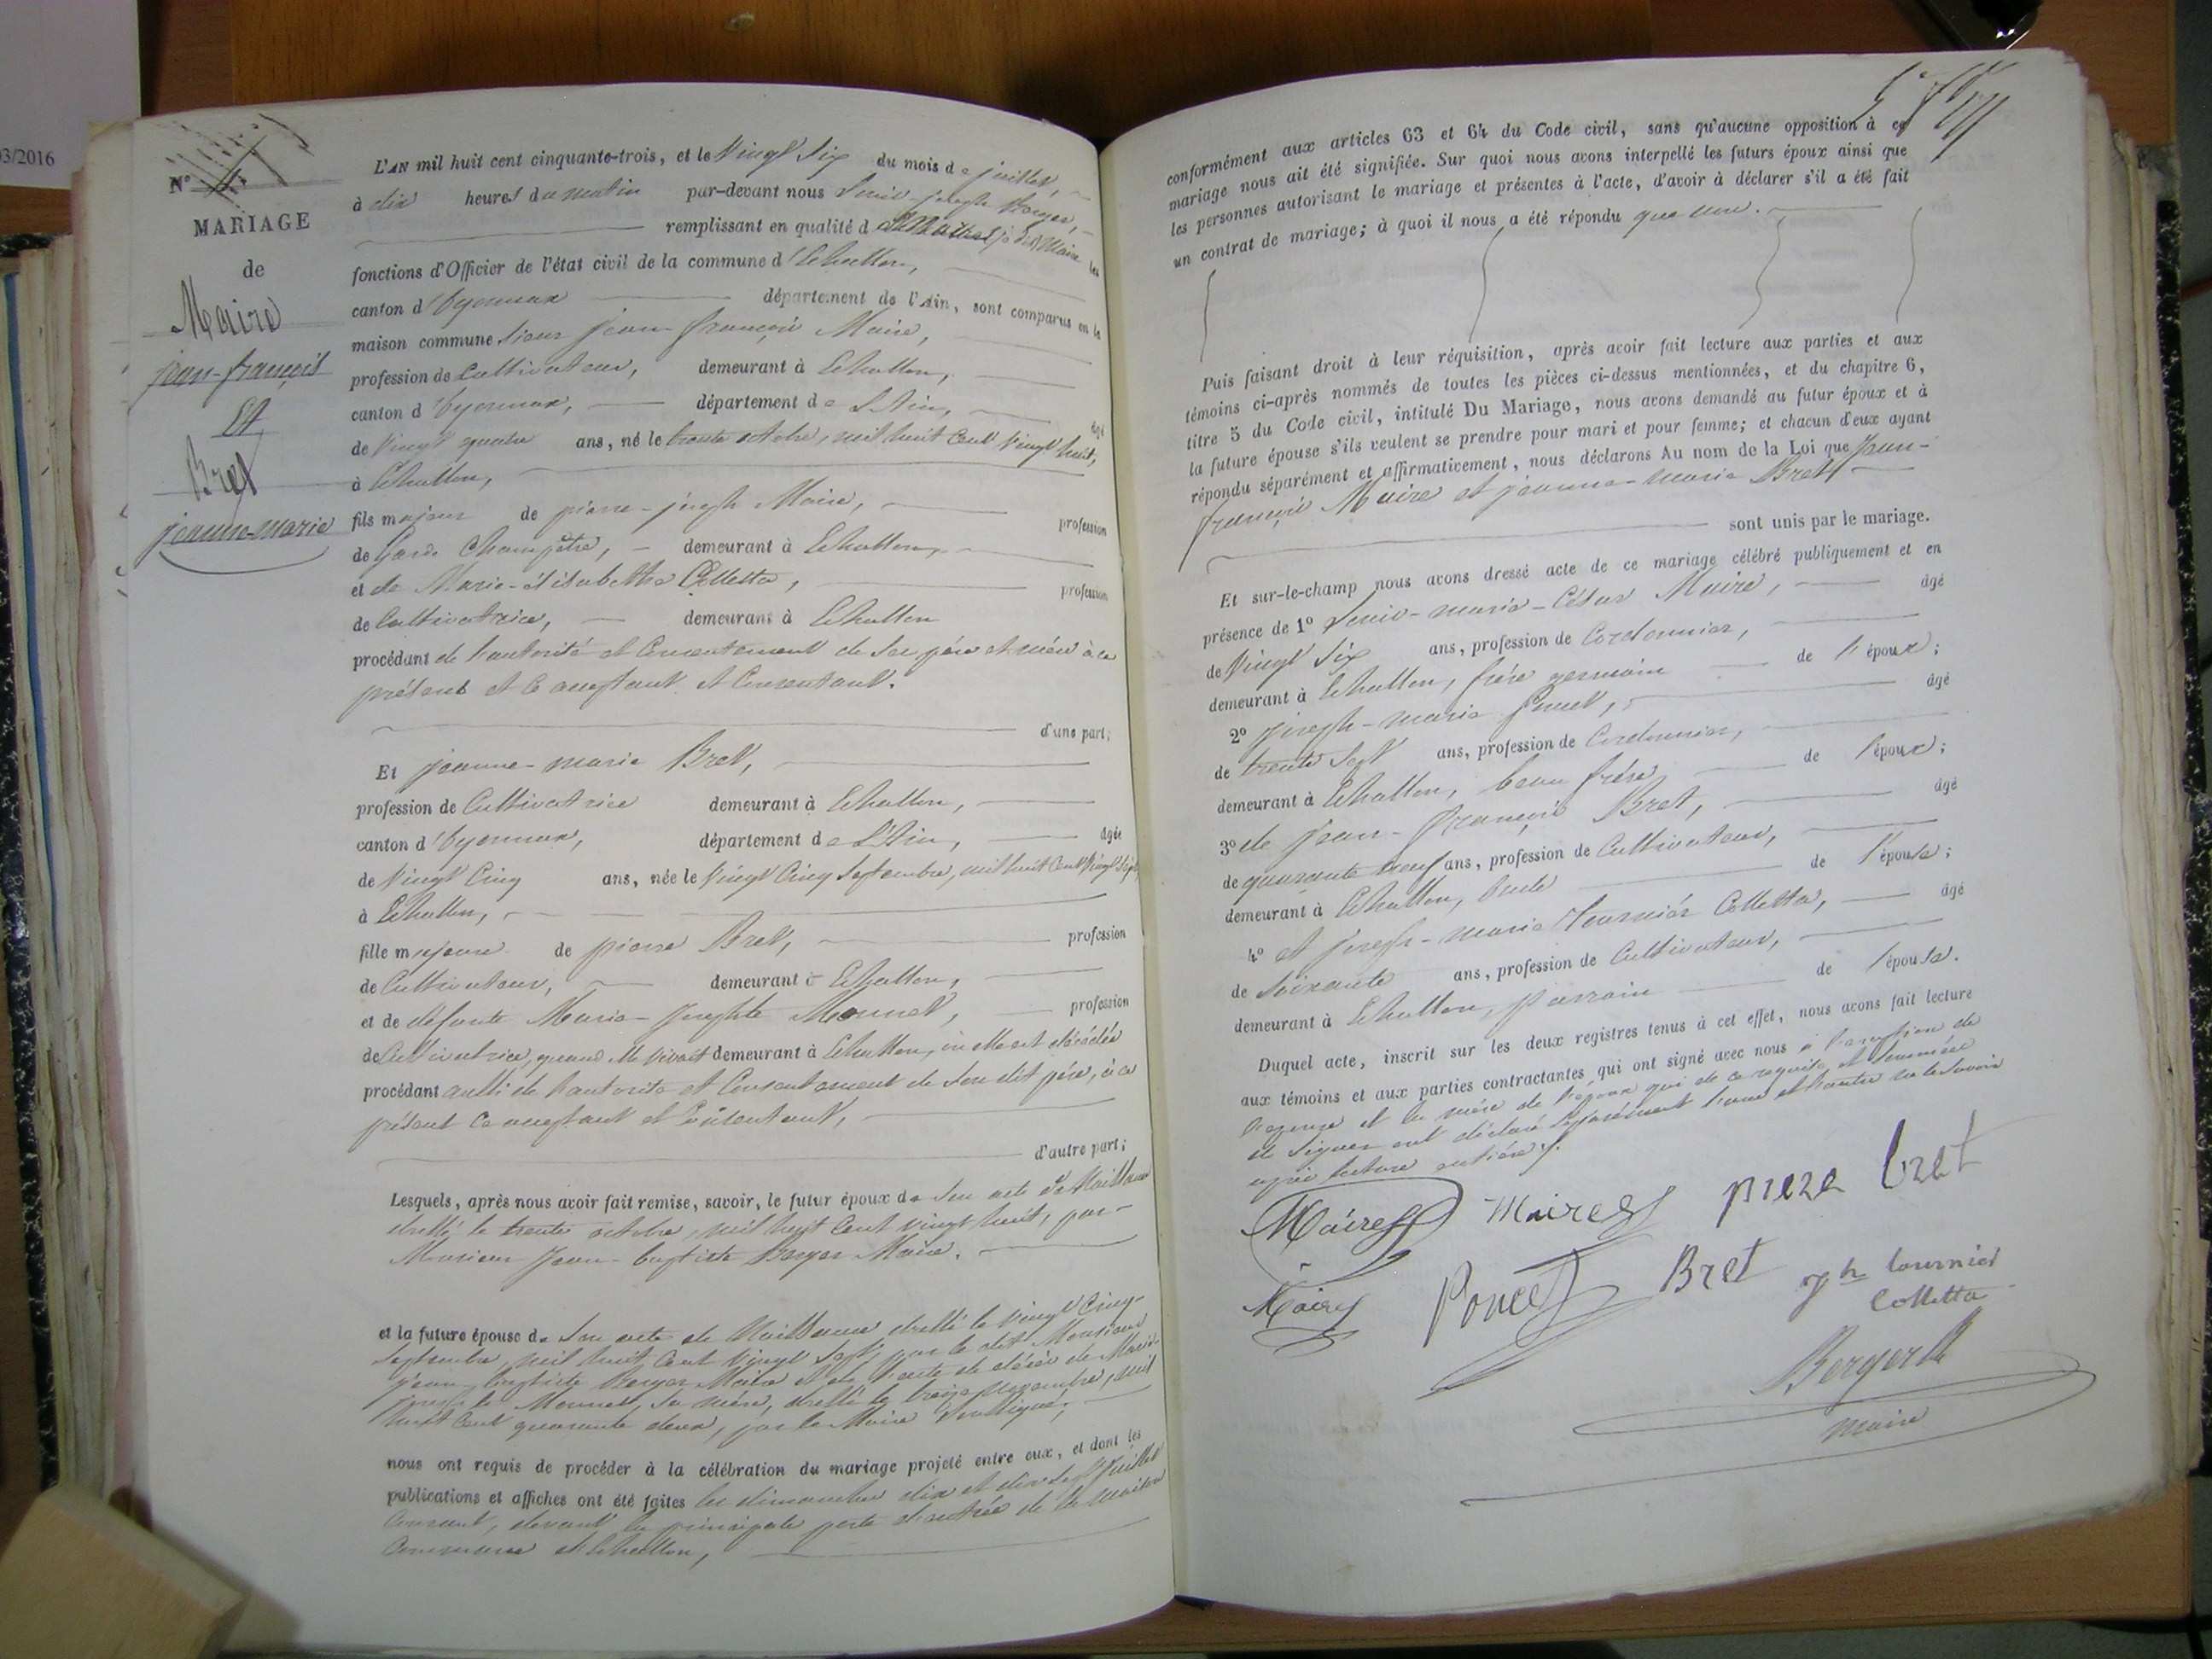 03/2016
N° 4.
MARIAGE
de
Maire
jean-françois
Et
Bret
jeanne-marie
L'AN mil huit cent cinquante-trois, et le Vingt Six du mois de juillet,
à dix heures du matin par-devant nous Louis joseph Berger,
remplissant en qualité de Maire les
fonctions d'Officier de l'état civil de la commune d'Echallon,
canton d'Oyonnax département de l'Ain, sont comparus en la
maison commune Sieur jean-françois Maire,
profession de Cultivateur, demeurant à Echallon,
canton d'Oyonnax, département de L'Ain, âgé
de Vingt quatre ans, né le trente octobre, mil huit Cent Vingt huit,
à Echallon,
fils majeur de pierre-joseph Maire, profession
de Garde Champêtre, demeurant à Echallon,
et de Marie-élisabeth Colletta, profession
de Cultivatrice, demeurant à Echallon
procédant de l'autorité et Consentement de Ses père et mère à ce
présents et Ce acceptant et Consentant.
d'une part;
Et jeanne-marie Bret,
profession de Cultivatrice demeurant à Echallon,
canton d'Oyonnax, département de L'Ain, âgée
de Vingt Cinq ans, née le Vingt Cinq Septembre, mil huit Cent Vingt Sept,
à Echallon,
fille majeure de pierre Bret, profession
de Cultivateur, demeurant à Echallon,
et de défunte Marie-Josephte Monnet, profession
de Cultivatrice, quand Elle Vivait demeurant à Echallon, où elle est décédée
procédant aussi de l'autorité et Consentement de Son dit père, à ce
présent Ce acceptant et Consentant,
d'autre part;
Lesquels, après nous avoir fait remise, savoir, le futur époux de Son acte de Naissance
dressé le trente octobre, mil huit Cent vingt huit, par
Monsieur Jean-baptiste Berger Maire.
et la future épouse de Son acte de Naissance dressé le Vingt Cinq
Septembre, mil huit Cent Vingt Sept, par le dit Monsieur
jean-baptiste Berger Maire et de l'acte de décès de Marie
josephte Monnet, Sa mère, dressé le treize novembre, mil
huit Cent quarante deux, par le Maire Soussigné;
nous ont requis de procéder à la célébration du mariage projeté entre eux, et dont les
publications et affiches ont été faites les dimanches dix et dix Sept Juillet
Courant, devant la principale porte d'entrée de la maison
Commune d'Echallon,
conformément aux articles 63 et 64 du Code civil, sans qu'aucune opposition à ce
mariage nous ait été signifiée. Sur quoi nous avons interpellé les futurs époux ainsi que
les personnes autorisant le mariage et présentes à l'acte, d'avoir à déclarer s'il a été fait
un contrat de mariage; à quoi il nous a été répondu que non.
Puis faisant droit à leur réquisition, après avoir fait lecture aux parties et aux
témoins ci-après nommés de toutes les pièces ci-dessus mentionnées, et du chapitre 6,
titre 5 du Code civil, intitulé Du Mariage, nous avons demandé au futur époux et à
la future épouse s'ils veulent se prendre pour mari et pour femme; et chacun d'eux ayant
répondu séparément et affirmativement, nous déclarons Au nom de la Loi que Jean-
françois Maire et jeanne-marie Bret
sont unis par le mariage.
Et sur-le-champ nous avons dressé acte de ce mariage célébré publiquement et en
présence de 1° Louis-marie-César Maire, âgé
de Vingt Six ans, profession de Cordonnier,
demeurant à Echallon, frère germain de l'époux;
2° joseph-marie Poncet, âgé
de trente Sept ans, profession de Cordonnier,
demeurant à Echallon, beau frère de l'époux;
3° de jean-françois Bret, âgé
de quarante neuf ans, profession de Cultivateur,
demeurant à Echallon, oncle de l'épouse;
4° et joseph-marie Tournier Colletta, âgé
de Soixante ans, profession de Cultivateur,
demeurant à Echallon, parrain de l'épouse.
Duquel acte, inscrit sur les deux registres tenus à cet effet, nous avons fait lecture
aux témoins et aux parties contractantes qui ont signé avec nous à l'exception de
l'épouse et la mère de l'époux qui de ce requise et Sommée
de Signer ont déclaré Séparément l'une et l'autre ne le Savoir
après lecture entière.
Maire Maire piere bret
Maire Poncet Bret jh tournier
Colletta
Berger
maire